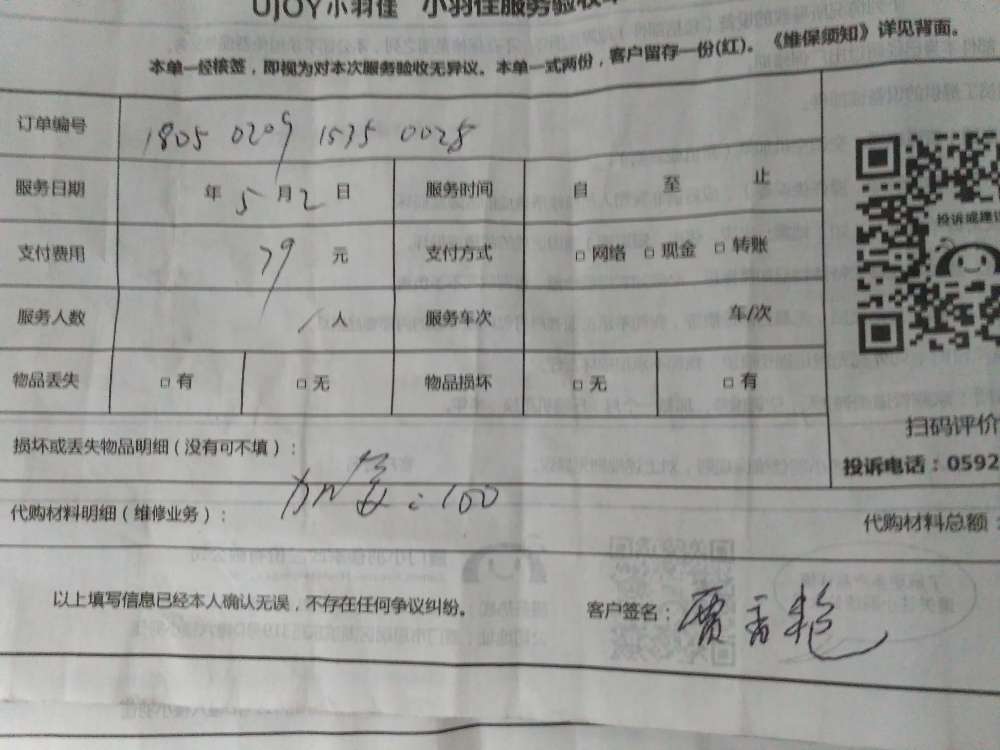 UJOY小羽佳 小羽佳服务验收单
本单一经核签，即视为对本次服务验收无异议。本单一式两份，客户留存一份(红)。《维保须知》详见背面。
订单编号 1805 0209 1535 0028
服务日期 年 5 月 2 日 服务时间 自 至 止
投诉或建议
支付费用 79 元 支付方式 □ 网络 □ 现金 □ 转账
服务人数 / 人 服务车次 车/次
物品丢失 □ 有 □ 无 物品损坏 □ 无 □ 有
扫码评价
损坏或丢失物品明细（没有可不填）：
投诉电话：0592
加氨：100
代购材料明细（维修业务）：
代购材料总额：
以上填写信息已经本人确认无误，不存在任何争议纠纷。 客户签名：